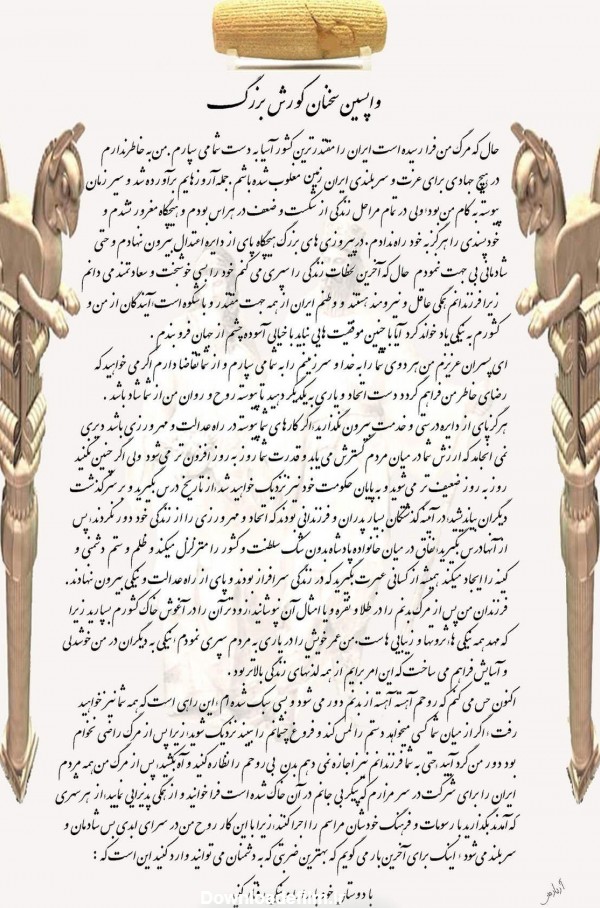 واپسین سخنان کورش بزرگ
حال که مرگ من فرا رسیده است ایران را مقتدرترین کشور آسیا به دست شما می سپارم . من به خاطر ندارم
در هیچ جهادی برای عزت و سربلندی ایران زمین مغلوب شده باشم . جمله آرزوهایم برآورده شد و سیر زمان
پیوسته به کام من بود؛ ولی در تمام مراحل زندگی از شکست و ضعف در هراس بودم و هیچگاه مغرور نشدم و
خودپسندی را هرگز به خود راه ندادم . در پیروزی های بزرگ هیچگاه پای از دایره اعتدال بیرون ننهادم و حتی
شادمانی بی جهت ننمودم حال که آخرین لحظات زندگی را سپری می کنم خود را بسی خوشبخت و سعادتمند می دانم
زیرا فرزندانم همگی عاقل و نیرومند هستند و وطنم ایران از همه جهت مقتدر و باشکوه است؛ آیندگان از من و
کشورم به نیکی یاد خواهند کرد آیا با چنین موفقیت هایی نباید با خیالی آسوده چشم از جهان فرو بندم .
ای پسران عزیزم من هر دوی شما را به خدا و سرزمینم را به شما می سپارم و از شما تقاضا دارم اگر می خواهید که
رضای خاطر من فراهم گردد دست اتحاد و یاری به یکدیگر دهید تا پیوسته روح و روان من از شما شاد باشد .
هرگز پای از دایره درستی و خدمت بیرون نگذارید، اگر کارهای شما پیوسته در راه عدالت و مهرورزی باشد دیری
نمی انجامد که ارزش شما در میان مردم گسترش می یابد و قدرت شما روز به روز افزون تر می شود ولی اگر چنین نکنید
روز به روز ضعیف تر می شوید و به پایان حکومت خود نیز نزدیک خواهید شد، از تاریخ درس بگیرید و بر سرگذشت
دیگران بیاندیشید، در آئینه گذشتگان بسیار پدران و فرزندانی بودند که اتحاد و مهرورزی را از زندگی خود دور نکردند، پس
از آنها درس بگیرید، نفاق در میان خانواده پادشاه بدون شک سلطنت و کشور را متزلزل میکند و ظلم و ستم دشمنی و
کینه را ایجاد میکند همیشه از کسانی عبرت بگیرید که در زندگی سرافراز بودند و پای از راه عدالت و نیکی بیرون ننهادند.
فرزندان من پس از مرگ بدنم را در طلا و نقره و یا امثال آن نپوشانید، زودتر آن را در آغوش خاک کشورم بسپارید زیرا
که مهد همه نیکی ها، ثروتها و زیبایی هاست. من عمر خویش را در یاری به مردم سپری نمودم، نیکی به دیگران در من خوشدلی
و آسایش فراهم می ساخت که این امر برایم از همه لذتهای زندگی بالاتر بود .
اکنون حس می کنم که روحم آهسته آهسته از بدنم دور می شود و بسی سبک شده ام، این راهی است که همه شما نیز خواهید
رفت، اگر از میان شما کسی میخواهد دستم را لمس کند و فروغ چشمانم را ببیند نزدیک شوید؛ زیرا پس از مرگ راضی نخواهم
بود دور من گرد آیید، حتی به شما فرزندانم نیز اجازه نمی دهم بدن بی روحم را نظاره کنید و آه بکشید، پس از مرگ من همه مردم
ایران را برای شرکت در سر مزارم که پیکر بی جانم در آن خاک شده است فرا خوانید و از همگی پذیرایی نمایید، از هر سری
که آمدند بگذارید با رسومات و فرهنگ خودشان مراسم را اجرا کنند، زیرا با این کار روح من در سرای ابدی بس شادمان و
سربلند می شود ، اینک برای آخرین بار می گویم که بهترین ضربتی که به دشمنان می توانید وارد کنید این است که :
با دوستان خود